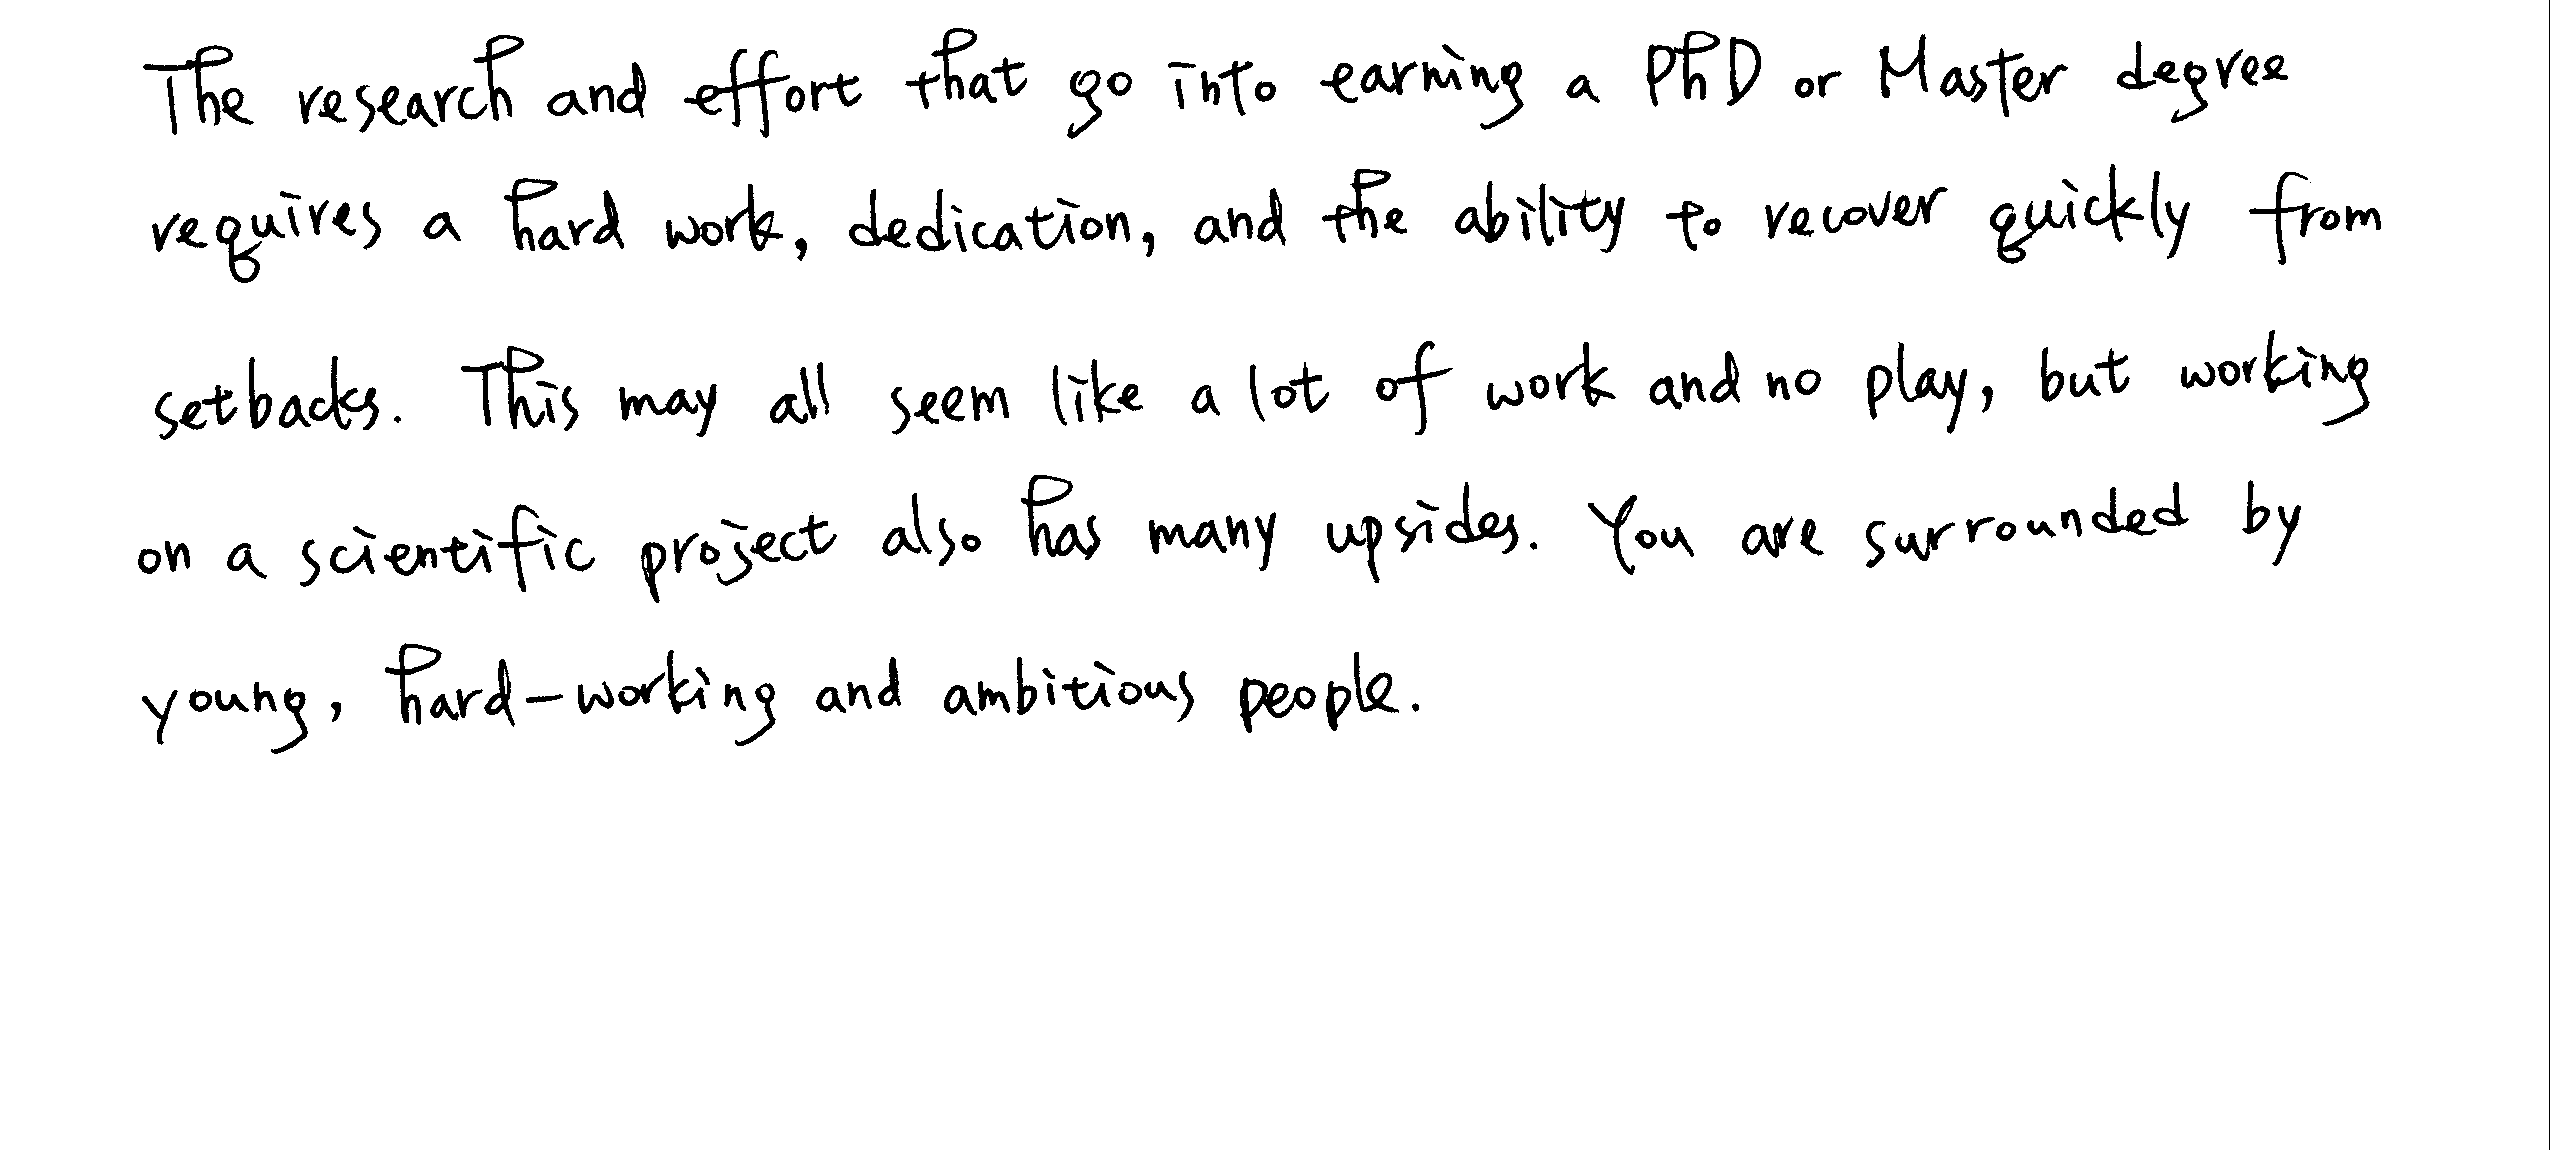 The research and effort that go into earning a PhD or Master degree
requires a hard work, dedication, and the ability to recover quickly from
setbacks. This may all seem like a lot of work and no play, but working
on a scientific project also has many upsides. You are surrounded by
young, hard-working and ambitious people.